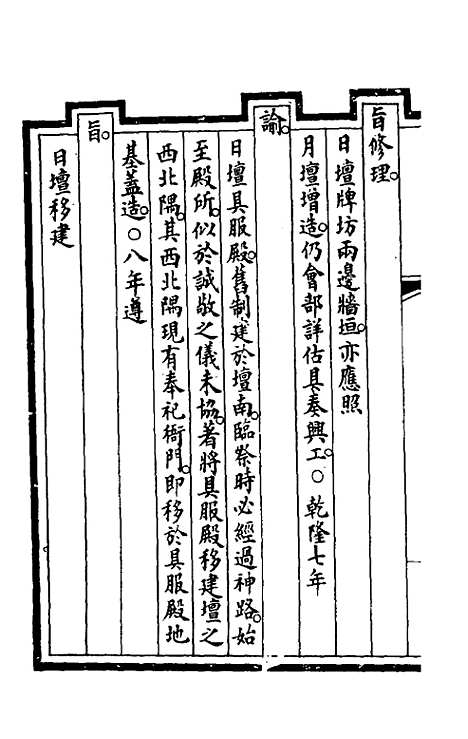 旨修理。
日壇牌坊兩邊牆垣。亦應照
月壇增造。仍會部詳估具奏興工。○乾隆七年
諭。
日壇具服殿。舊制建於壇南。臨祭時必經過神路。始
至殿所。似於誠敬之儀未協。著將具服殿移建壇之
西北隅。其西北隅現有奉祀衙門。即移於具服殿地
基蓋造。○八年遵
旨。
日壇移建